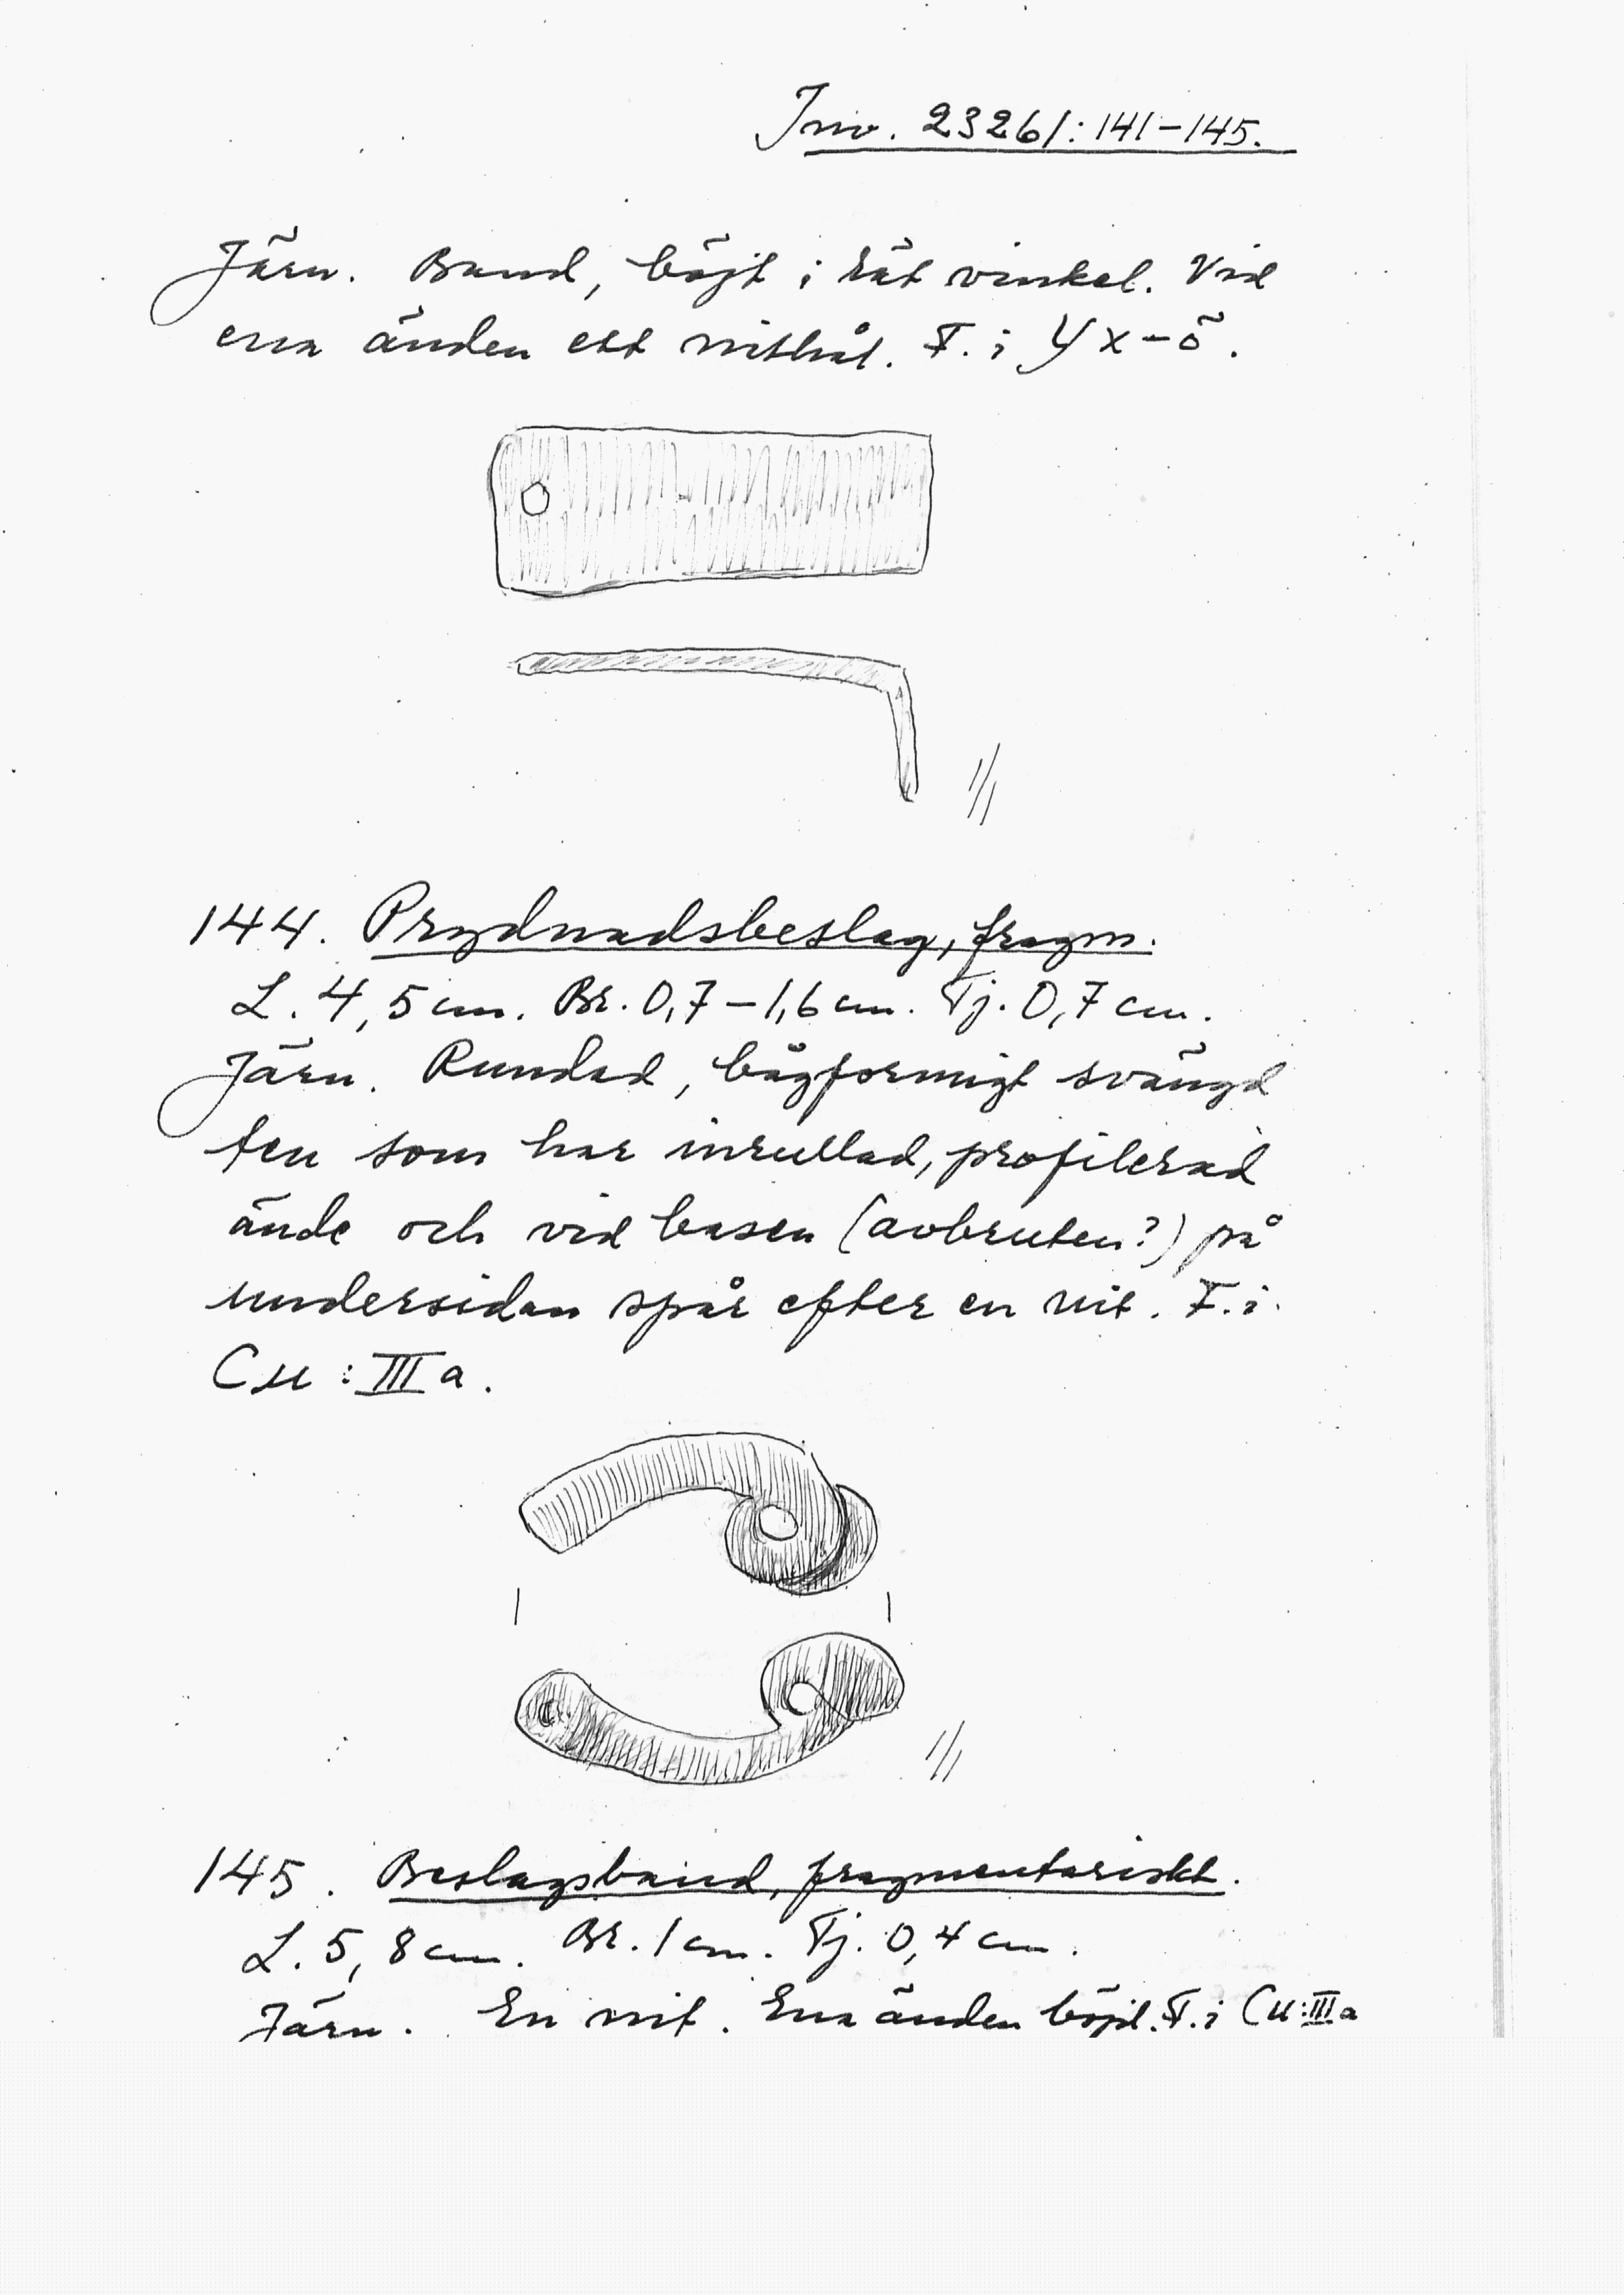 Inv. 23261:141-145.
Järn. Band, böjt i rät vinkel. Vid
ena änden ett nithål. F. i Yx-ö.
1/1
144. Prydnadsbeslag, fragm.
L. 4,5 cm. Br. 0,7-1,6 cm. Tj. 0,7 cm.
Järn. Rundad, bågformigt svängd
ten som har inrullad, profilerad
ände och vid basen (avbruten?) på
undersidan spår efter en nit. F. i.
Cu:III a.
1/1
145. Beslagsband, fragmentariskt.
L. 5,8 cm. Br. 1 cm. Tj. 0,4 cm.
Järn. En nit. Ena änden böjd. F. i Cu:III a